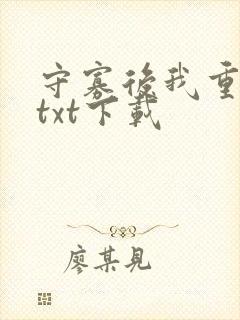 守寡後我重
txt下載
廖某見